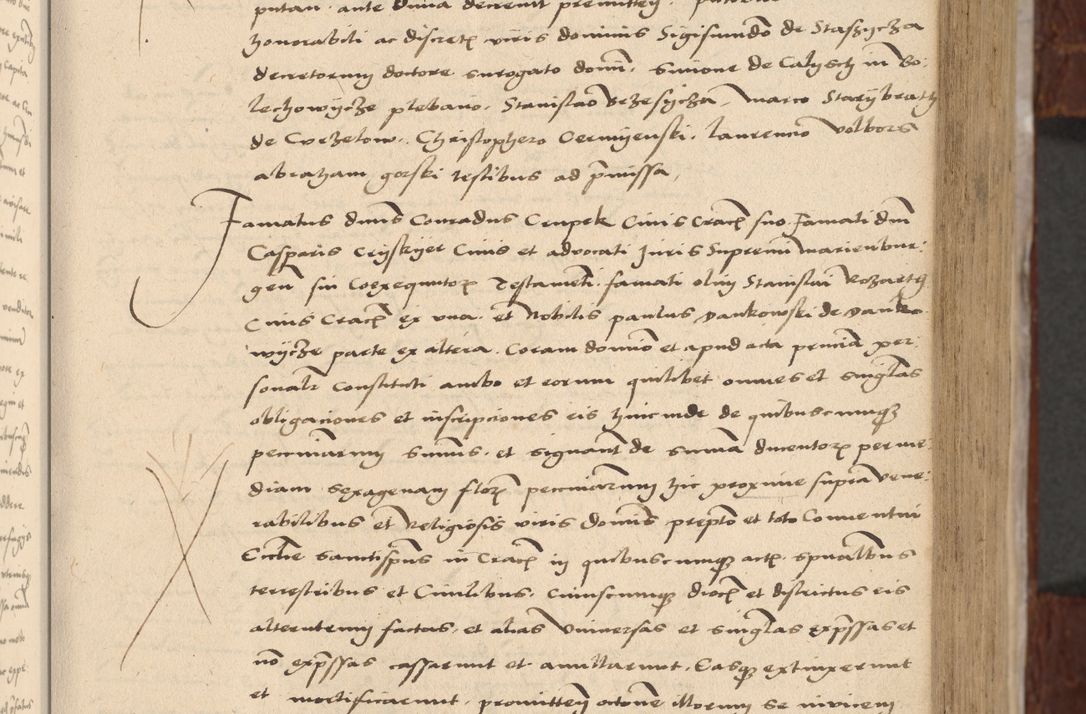 honorabili ac discret viris dominis Sigismundo de Staszycza
decretorum doctore surogato domi. Simone de Calysch in Bo-
lechowycze plebano. Stanislao Brzesycza, Marco Starybrath
de Christophero Cermyenski. laurencio Volbors
abraham gorski testibus ad pmissa,
Famatus dnus Conradus Crupek Civis Crac suo famati dni
Casparis Cryskyer Civis et advocati Juris Supremi marienbur:
gen sui Coexequutor Testamenti. famati olim Stanislai
Civis Crac ex una. et Nobilis paulus Dankowski de Danko
wycze parte ex altera. Coram domino et apud acta pncia per:
sonalr Constituti ambo et eorum quilibet omnes et singlas
obligaciones et inscripciones eis hincinde de quibuscumque
pecuniarum summis. et signant de summa ducentor per me:
diam sexagenam flor pecuniarum hic proxime supra Vene:
rabilibus et Religiosis viris dominis prepto et toto Conventui
Ecclie Sanctispus in Crac in quibuscumque actis spualibus
terrestribus et Civilibus. cuiuscumque dioc et districtus eis
alterutrum factas. et alias Universas et singlas expssas et
no expssas cassarunt et annullarunt. Easque extinxerunt
et mortificarunt. promitten octone illorum se invicem